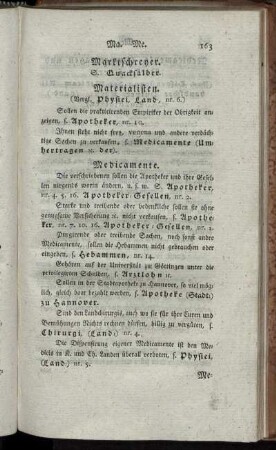 Ma. Me. 163
Marktschreyer.
S. Quacksalber.
Materialisten.
(Vergl. Physici, Land, nr. 6.)
Sollen die practicirenden Empiriker der Obrigkeit an-
zeigen, s. Apotheker, nr. 10.
Ihnen steht nicht frey, venena und andere verdäch-
tige Sachen zu verkaufen, s. Medicamente (Um-
hertragen rc. der).
Medicamente.
Die verschriebenen sollen die Apotheker und ihre Gesel-
len nirgends worin ändern, u. s. w. S. Apotheker,
nr. 4. 5. 16. Apotheker-Gesellen, nr. 2.
Starke und treibende oder bedenkliche sollen sie ohne
genugsame Versicherung rc. nicht verkaufen, s. Apothe-
ker, nr. 7. 10. 16. Apotheker-Gesellen, nr. 4.
Purgirende oder treibende Sachen, noch sonst ander
Medicamente, sollen die Hebammen nicht gebrauchen oder
eingeben, s. Hebammen, nr. 14.
Gehören auf der Universität zu Göttingen unter die
privilegirten Schulden, s. Arztlohn rc.
Sollen in der Stadtapotheke zu Hannover, so viel mög-
lich, gleich baar bezahlt werden, s. Apotheke (Stadt)
zu Hannover.
Sind den Landchirurgis, auch wo sie für ihre Curen und
Bemühungen Nichts rechnen dürfen, billig zu vergüten, s.
Chirurgi, (Land) nr. 4.
Die Dispensirung eigener Medicamente ist den Me-
dicis in K. und Ch. Landen überall verboten, s. Physici,
(Land) nr. 5.
Me-